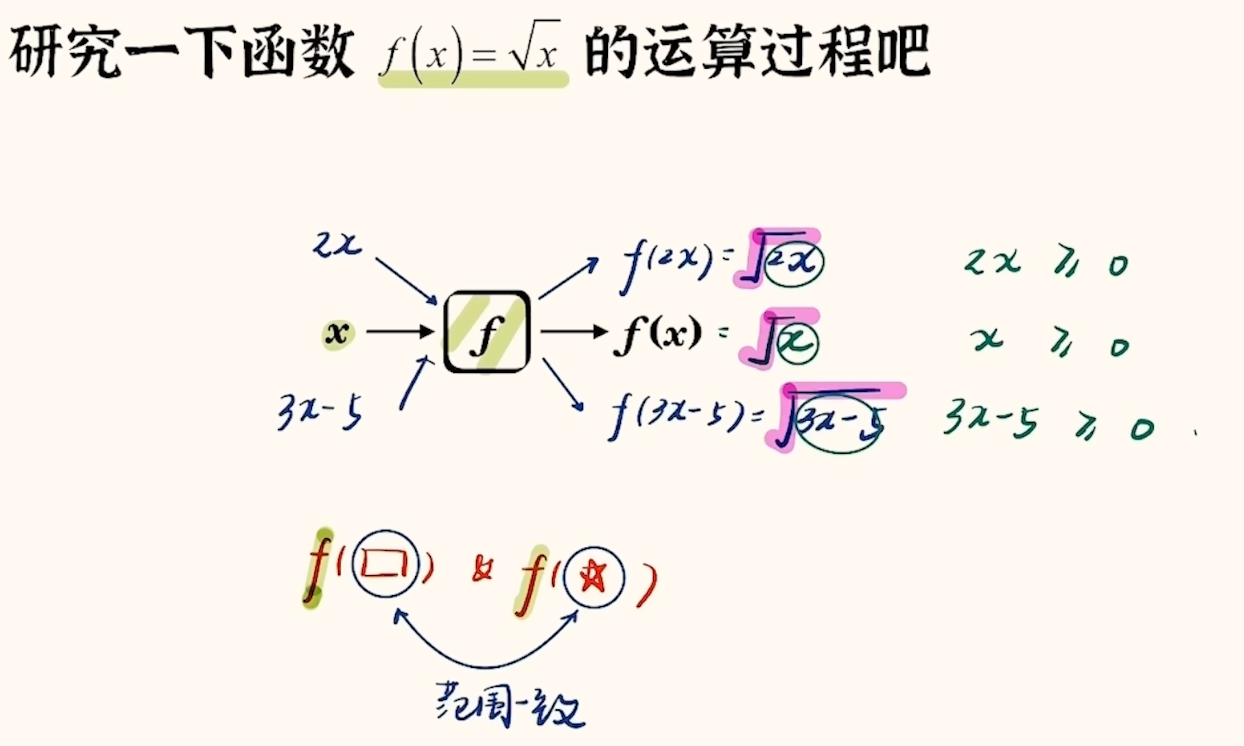 研究一下函数 f(x)=√x 的运算过程吧
2x f(2x)=√2x 2x ⩾ 0
x f f(x) = √x x ⩾ 0
3x-5 f(3x-5)=√3x-5 3x-5 ⩾ 0
f(□) & f(☆)
范围一致